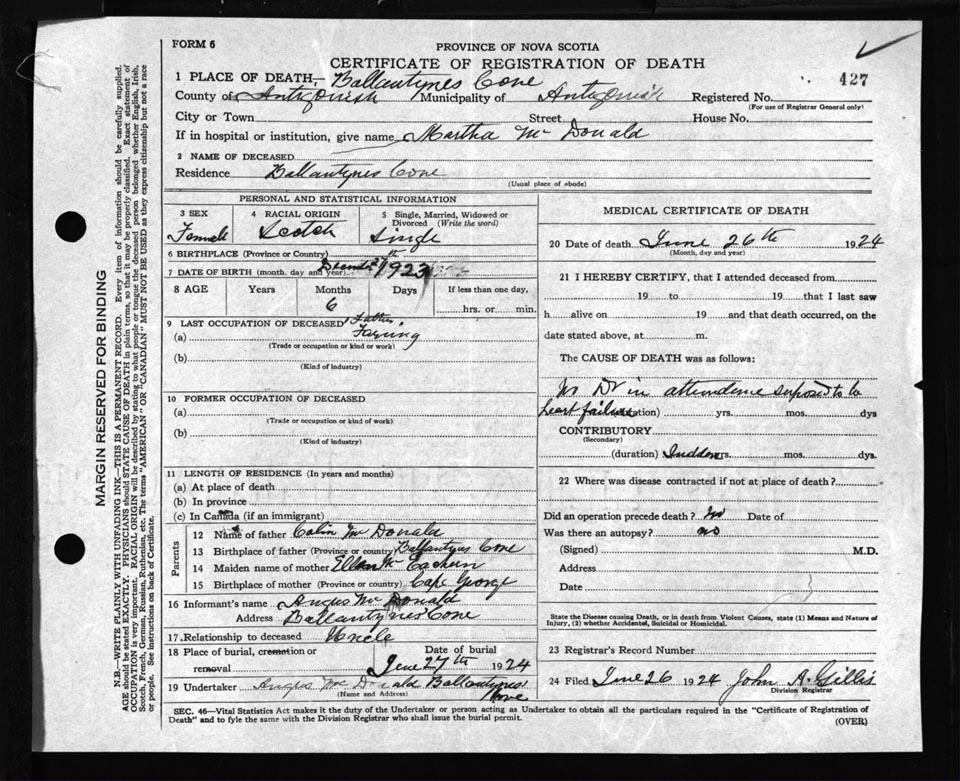 FORM 6
PROVINCE OF NOVA SCOTIA
CERTIFICATE OF REGISTRATION OF DEATH
427
1 PLACE OF DEATH— Ballantynes Cove
County of Antigonish Municipality of Antigonish Registered No.
(For use of Registrar General only)
City or Town Street House No.
If in hospital or institution, give name Martha Mc Donald
2 NAME OF DECEASED
Residence Ballantynes Cove
(Usual place of abode)
PERSONAL AND STATISTICAL INFORMATION
3 SEX 4 RACIAL ORIGIN 5 Single, Married, Widowed or Divorced (Write the word)
Female Scotch Single
6 BIRTHPLACE (Province or Country)
7 DATE OF BIRTH (month, day and year) 1923
8 AGE Years Months Days If less than one day,
6 hrs. or min.
9 LAST OCCUPATION OF DECEASED Father
(a) Farming
(Trade or occupation or kind or work)
(b)
(Kind of industry)
10 FORMER OCCUPATION OF DECEASED
(a)
(Trade or occupation or kind of work)
(b)
(Kind of industry)
11 LENGTH OF RESIDENCE (In years and months)
(a) At place of death
(b) In province
(c) In Canada (if an immigrant)
Parents
12 Name of father Colin Mc Donald
13 Birthplace of father (Province or country) Ballantynes Cove
14 Maiden name of mother Ellen Mc Eachern
15 Birthplace of mother (Province or country) Cape George
16 Informant's name Angus Mc Donald
Address Ballantynes Cove
17 Relationship to deceased Uncle
18 Place of burial, cremation or removal Date of burial
June 27th 1924
19 Undertaker Angus Mc Donald Ballantynes Cove
(Name and Address)
MEDICAL CERTIFICATE OF DEATH
20 Date of death June 26th 1924
(Month, day and year)
21 I HEREBY CERTIFY, that I attended deceased from
19 to 19 that I last saw
h alive on 19 and that death occurred, on the
date stated above, at m.
The CAUSE OF DEATH was as follows:
No Dr in attendence suposd to be
heart failure (duration) yrs. mos. dys
CONTRIBUTORY
(Secondary)
(duration) Sudden yrs. mos. dys.
22 Where was disease contracted if not at place of death?
Did an operation precede death? No Date of
Was there an autopsy? no
(Signed) M.D.
Address
Date
State the Disease causing Death, or in death from Violent Causes, state (1) Means and Nature of
Injury, (2) whether Accidental, Suicidal or Homicidal.
23 Registrar's Record Number
24 Filed June 26 1924 John A. Gillis
Division Registrar
SEC. 46—Vital Statistics Act makes it the duty of the Undertaker or person acting as Undertaker to obtain all the particulars required in the "Certificate of Registration of
Death" and to fyle the same with the Division Registrar who shall issue the burial permit.
(OVER)
MARGIN RESERVED FOR BINDING
N.B.—WRITE PLAINLY WITH UNFADING INK—THIS IS A PERMANENT RECORD. Every item of information should be carefully supplied.
AGE should be stated EXACTLY. PHYSICIANS should STATE CAUSE OF DEATH in plain terms, so that it may be properly classified. Exact statement of
OCCUPATION is very important. RACIAL ORIGIN will be described by stating to what people or tongue the deceased person belonged whether English, Irish,
Scotch, French, German, Russian, Ruthenian, etc. The terms "AMERICAN" OR "CANADIAN" MUST NOT BE USED as they express citizenship but not a race
or people. See instructions on back of Certificate.